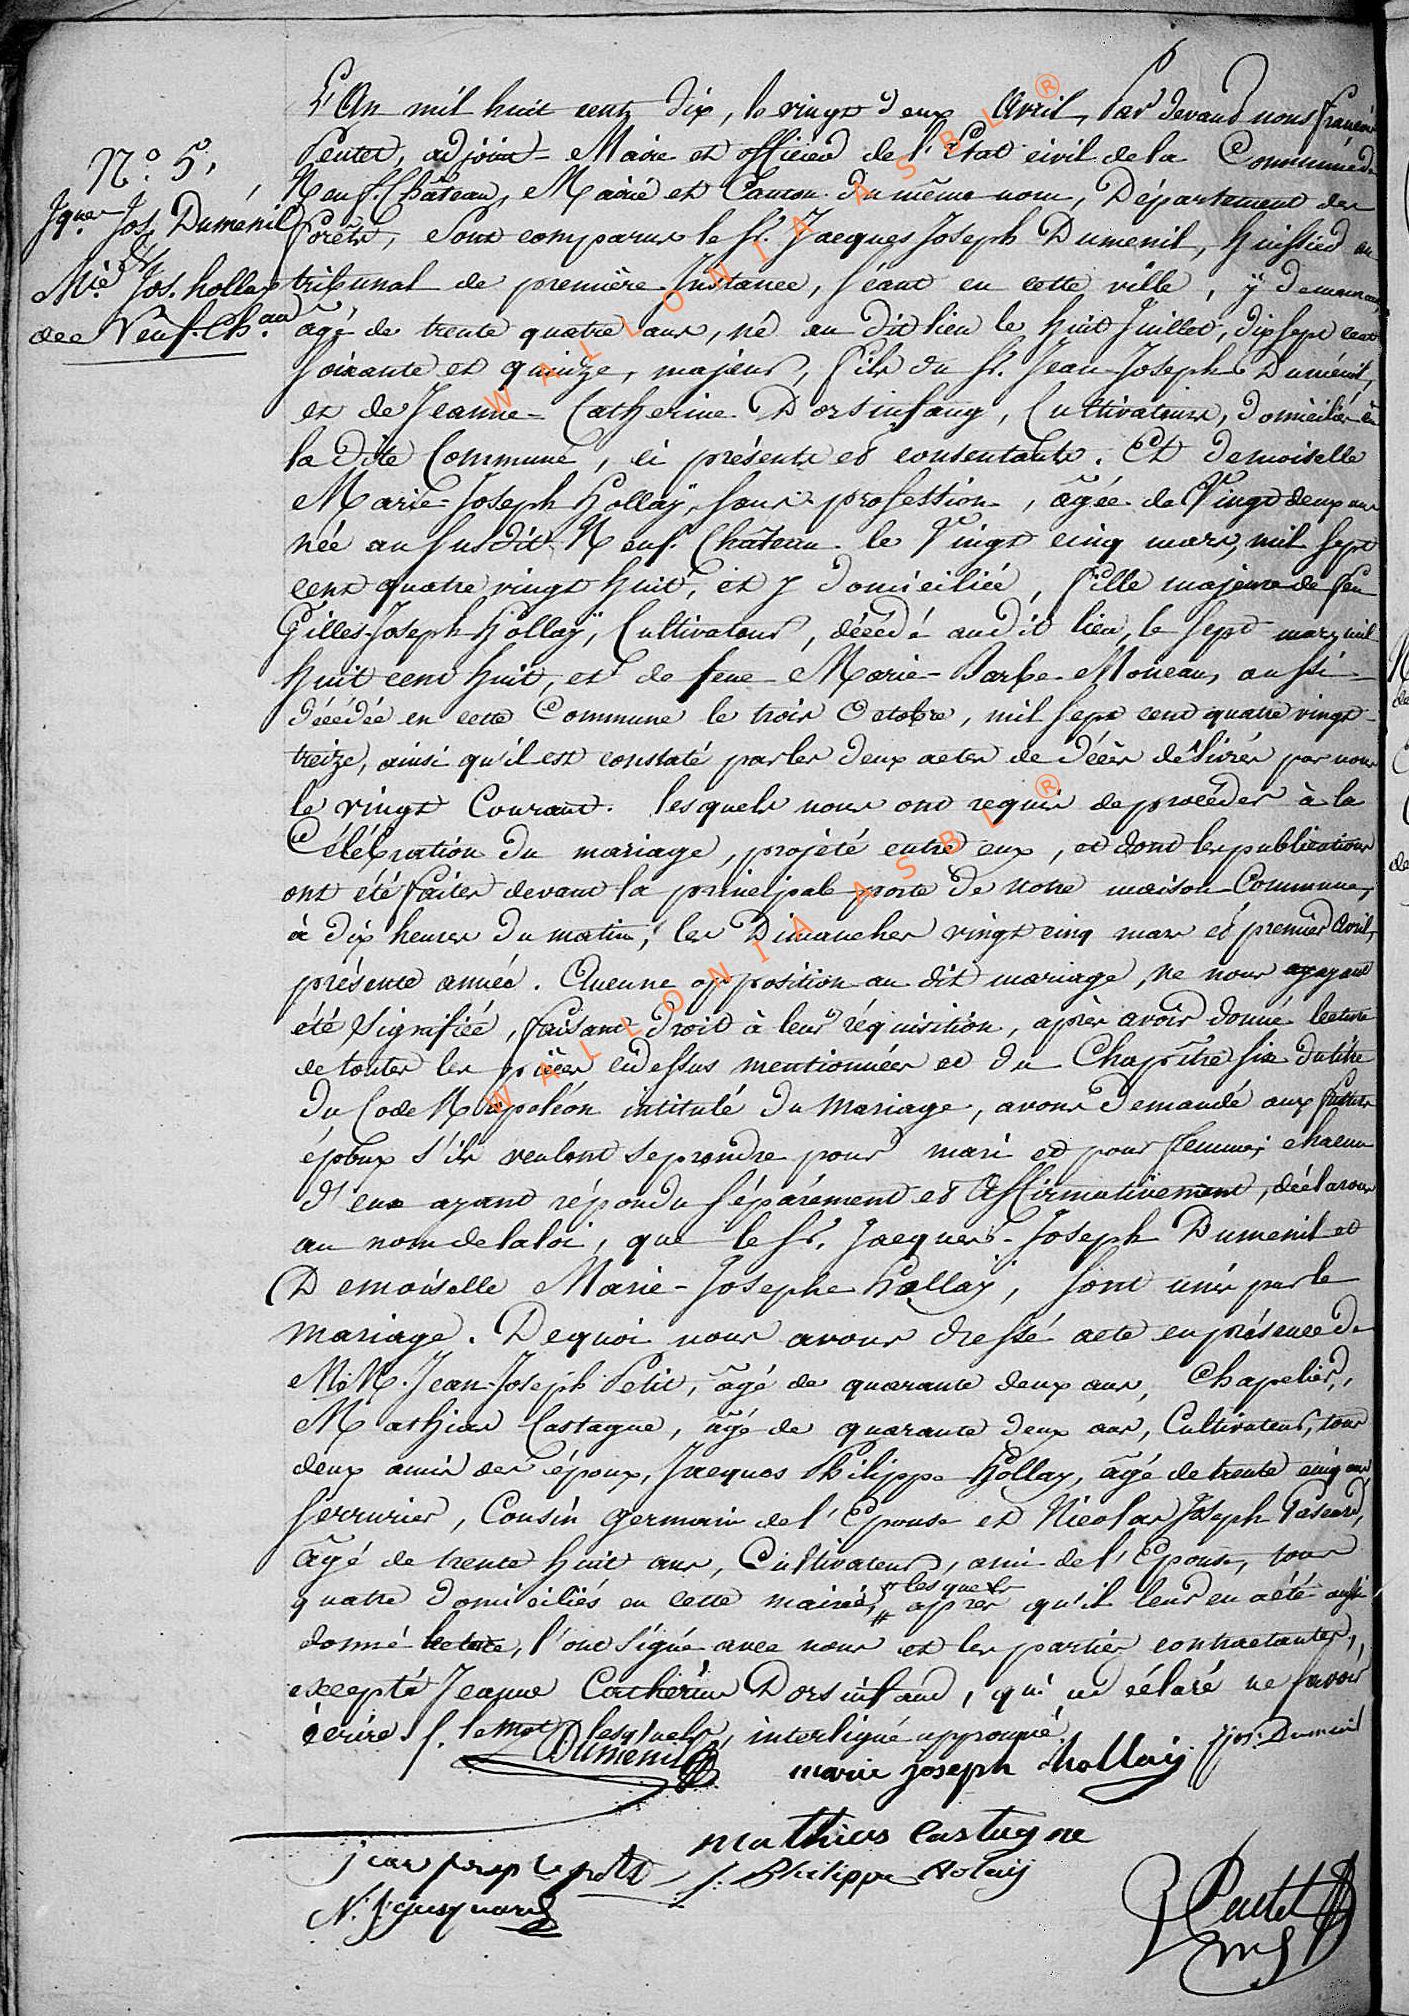 N.° 5.
Jques Jos. Duménil
&
Mie. Jos. hollaÿ
de Neuf-Chau.
L'An mil huit cent dix, le vingt deux Avril, Par devant nous François
Pentet, adjoint-Maire et officier de l'Etat civil de la Commune de
Neuf-Château, Mairie et Canton du même nom, Département des
forêts, Sont comparus le Sr. Jacques Joseph Dumenil, huissier au
tribunal de première Instance, séant en cette ville, ÿ demeurant,
âgé de trente quatre ans, né au dit lieu le huit Juillet, dix sept cent
soixante et quinze, majeur, fils du Sr. Jean-Joseph Duménil,
et de Jeanne-Catherine Dorsinfang, Cultivateurs, domiciliés en
la dite Commune, ici présents et consentants. Et demoiselle
Marie-Joseph Hollaÿ, sans profession, âgée de Vingt deux ans
née au susdit Neuf-Château le Vingt cinq mars, mil sept
cent quatre vingt huit, et y domiciliée, fille majeure de feu
Gilles-Joseph Hollaÿ, Cultivateur, décédé audit lieu, le sept mars mil
huit cent huit, et de feue Marie-Barbe Moneau, aussi
décédée en cette Commune le trois Octobre, mil sept cent quatre vingt
treize, ainsi qu'il est constaté par les deux actes de décès délivrés par nous
le vingt Courant. lesquels nous ont requis de procéder à la
Célébration du mariage, projété entre eux, et dont les publications
ont été faites devant la principale porte de notre maison Commune,
à dix heures du matin, les Dimanches vingt cinq mars et premier Avril,
présente année. Aucune opposition au dit mariage, ne nous ayant
été signifiée, faisant droit à leur réquisition, après avoir donné lecture
de toutes les pièces cidessus mentionnées et du Chapître six du titre
du Code Napoléon intitulé du Mariage, avons demandé aux futurs
époux s'ils veulent se prendre pour mari et pour femme; chacun
d'eux ayant répondu séparément et Affirmativement, déclarons
au nom de la loi, que le Sr. Jacques-Joseph Dumenil et
Demoiselle Marie-Josephe Hollaÿ, sont unis par le
mariage. De quoi nous avons dressé acte en présence de
MM. Jean-Joseph Petit, âgé de quarante deux ans, Chapelier,
Mathieu Castagne, âgé de quarante deux ans, Cultivateur, tous
deux amis des époux, Jacques Philippe Hollay, âgé de trente cinq ans,
serrurier, Cousin germain de l'Epouse et Nicolas Joseph
âgé de trente huit ans, Cultivateur, ami de l'Epouse, tous
quatre domiciliés en cette mairie, # lesquels # après qu'il leur en a été aussi
donné lecture, l'ont signé avec nous et les parties contractantes,
excepté Jeanne Catherine Dorsinfand, qui a déclaré ne savoir
écrire. le mot lesquels, interligné approuvé.
Dumenil marie joseph hollaÿ jjos: Dumenil
mathieu Castagne
jean joseph petit J. Philippe Holaÿ
Pentet
WALLONIA ASBL ®
WALLONIA ASBL ®